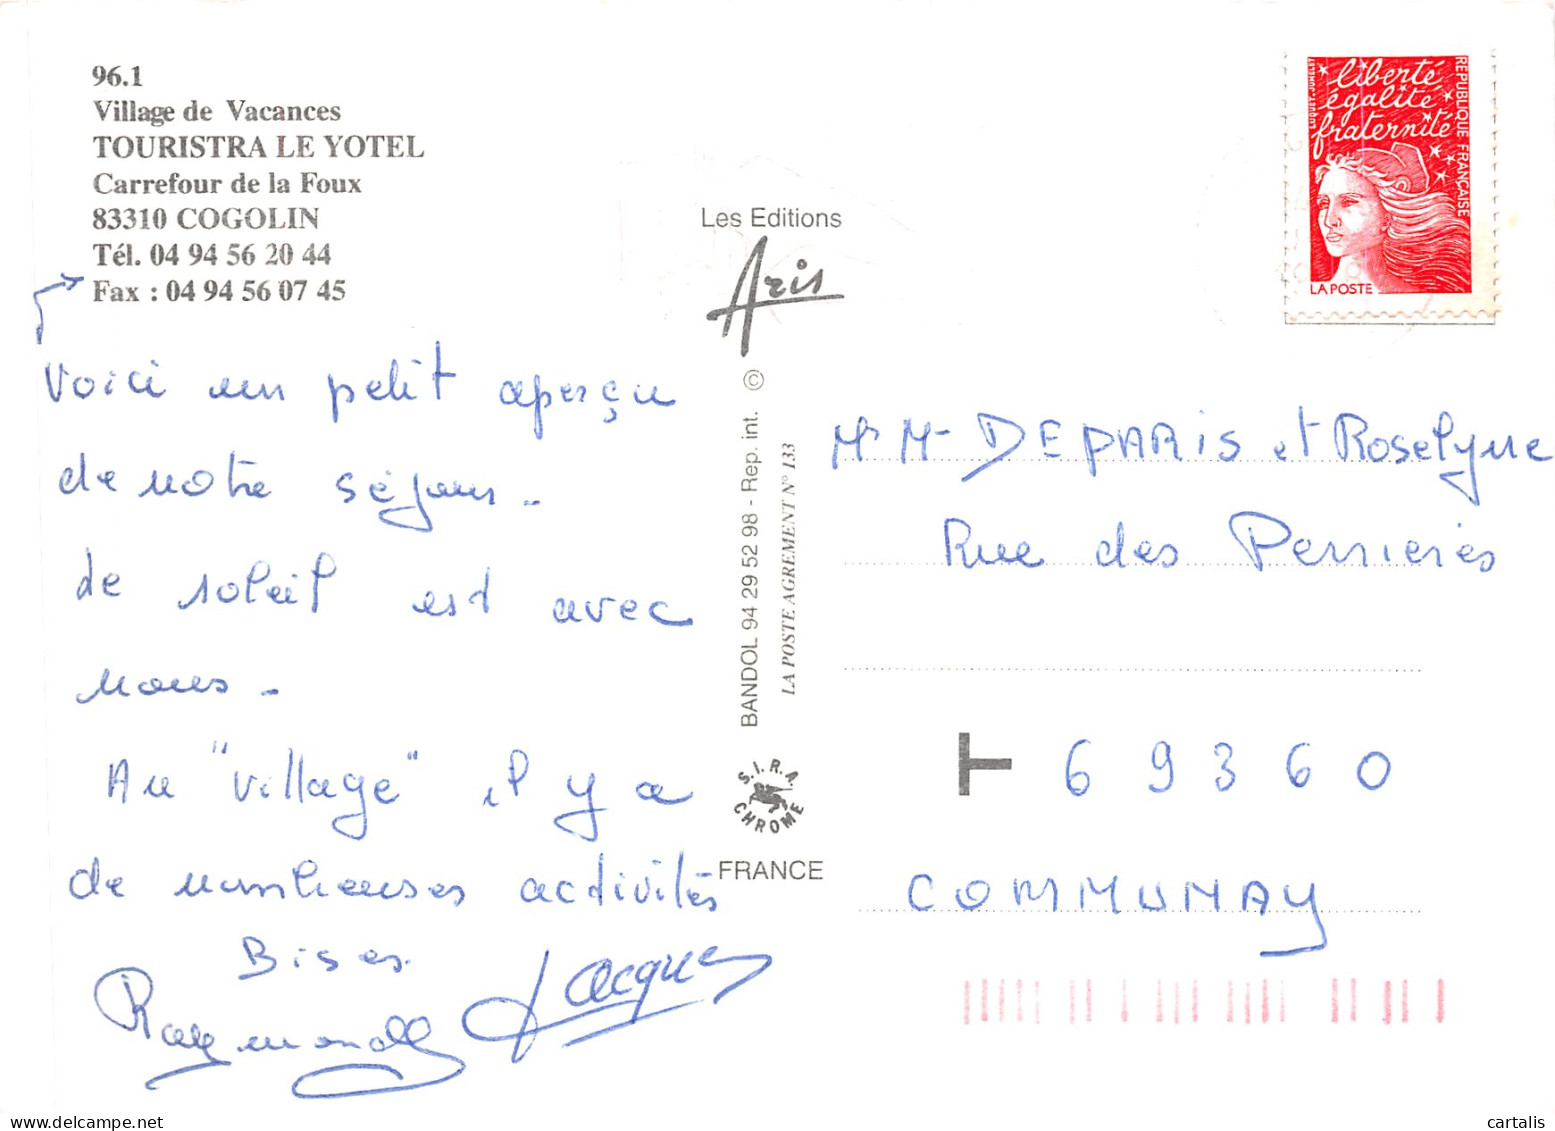 96.1
Village de Vacances
TOURISTRA LE YOTEL
Carrefour de la Foux
83310 COGOLIN
Tél. 04 94 56 20 44
Fax : 04 94 56 07 45
Voici un petit aperçu
de notre séjour.
Le soleil est avec
nous.
Au "village" il y a
de nombreuses activités
Bises.
Raymonde Jacques
Les Editions
Aris
BANDOL 94 29 52 98 - Rep. int. ©
LA POSTE AGREMENT N° 133
S.I.R.A.
CHROME
FRANCE
liberté
égalité
fraternité
REPUBLIQUE FRANÇAISE
LA POSTE
Mr Me DEPARIS et Roselyne
Rue des Perrieres
T 69360
COMMUNAY
cartalis